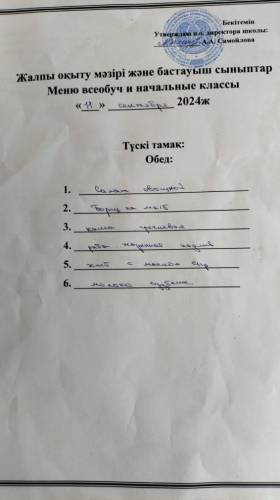 Бекітемін
Утверждаю и.о. директора школы:
А.А. Самойлова
Жалпы оқыту мәзірі және бастауыш сыныптар
Меню всеобуч и начальные классы
« 11 » сентября 2024ж
Түскі тамақ:
Обед:
1. Салат овощной
2. Борщ на мясе
3. каша гречневая
4. рыба
5. хлеб с маслом сыр
6. молоко